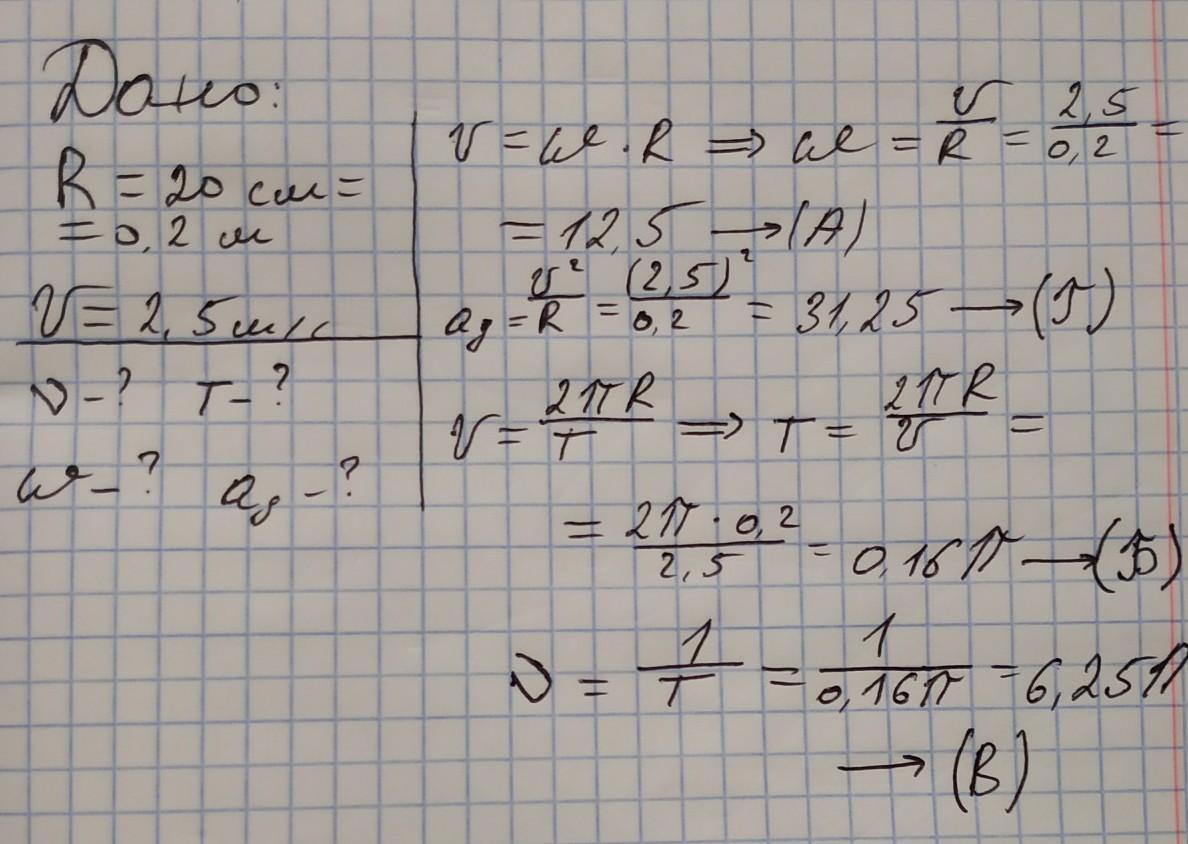 Дано:
R = 20 см =
= 0,2 м
V = 2,5 м/с
ν - ? T - ?
ω - ? a_g - ?
V = ω · R ⇒ ω = V/R = 2,5/0,2 =
= 12,5 → (А)
a_g = V²/R = (2,5)²/0,2 = 31,25 → (Г)
V = 2πR/T ⇒ T = 2πR/V =
= 2π · 0,2/2,5 = 0,16π → (Б)
ν = 1/T = 1/0,16π = 6,25π
→ (В)